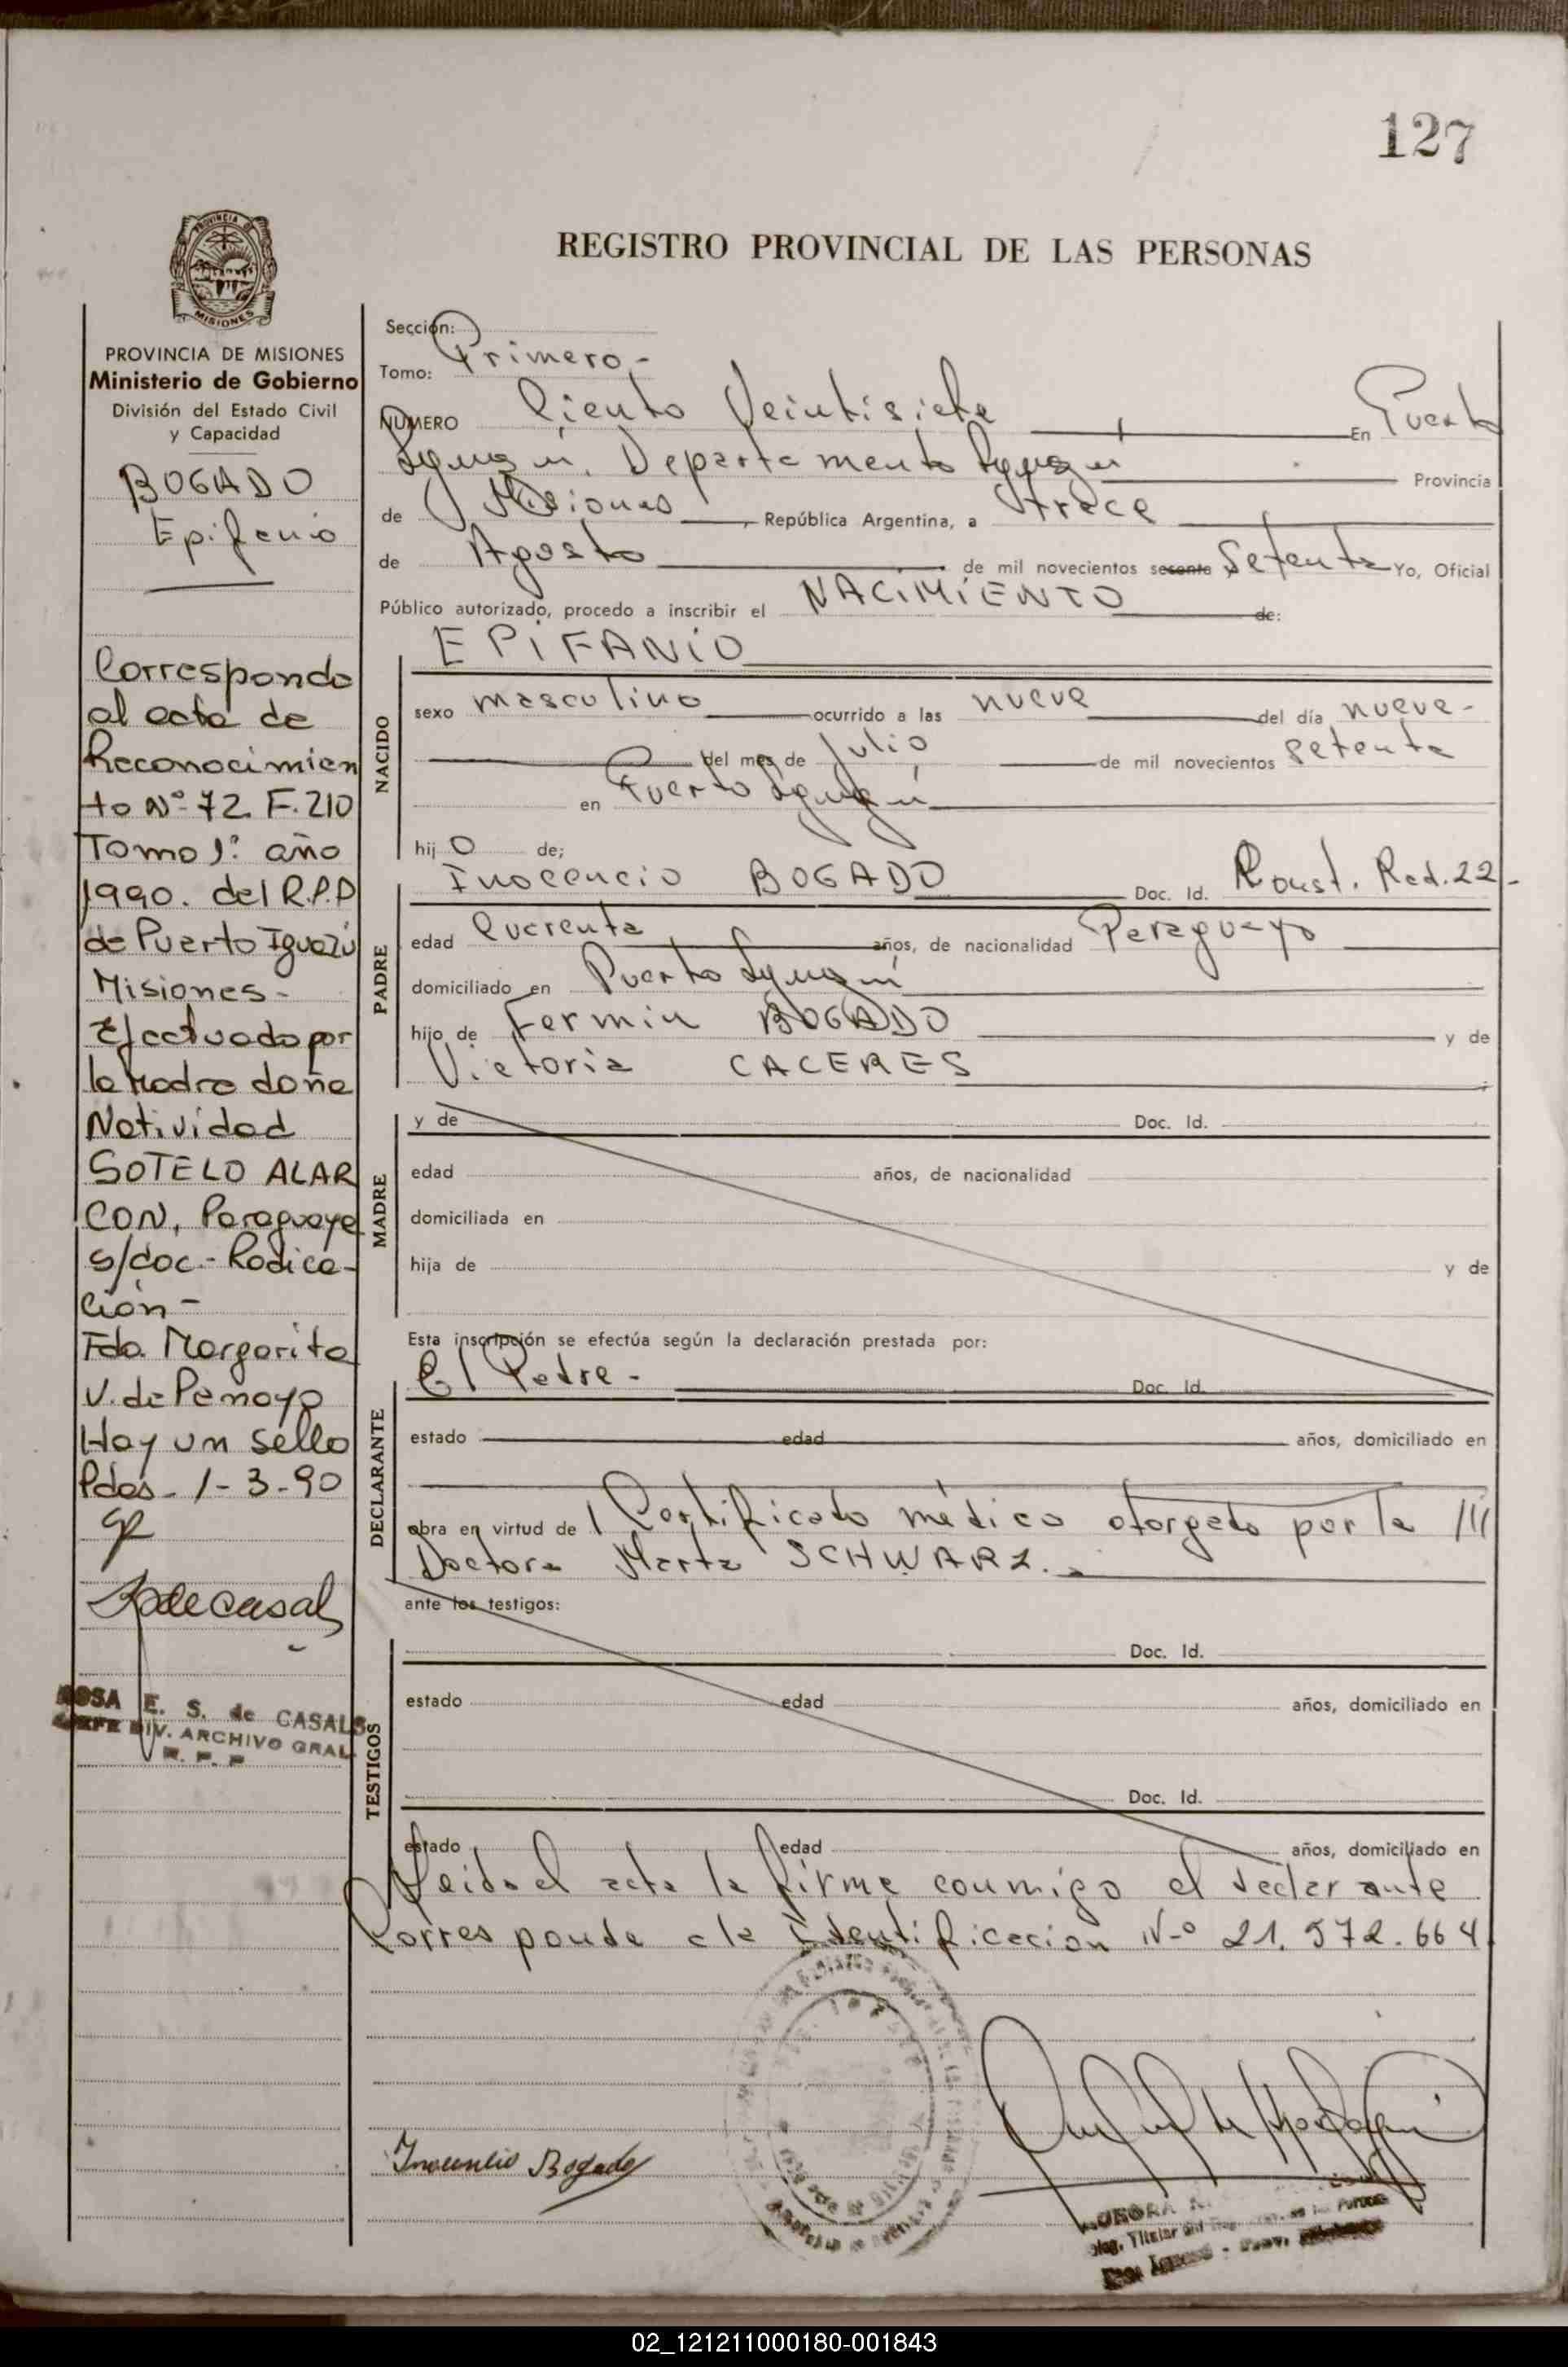 127
PROVINCIA DE
MISIONES
REGISTRO PROVINCIAL DE LAS PERSONAS
PROVINCIA DE MISIONES
Ministerio de Gobierno
División del Estado Civil
y Capacidad
BOGADO
Epifanio
Corresponde
al acta de
Reconocimien
to Nº 72. F. 210
Tomo 1º año
1990. del R.P.P
de Puerto Iguazú
Misiones-
Efectuado por
la Madre doña
Natividad
SOTELO ALAR
CON, Paraguaya
s/doc.- Radica-
ción-
Fdo. Margarita
V. de Penayo
Hay un sello
Pdas- 1-3-90
ROSA E. S. de CASALS
JEFE DIV. ARCHIVO GRAL.
R. P. P
Sección:
Tomo: Primero-
NUMERO Ciento Veintisiete En Puerto
Iguazú, Departamento Iguazú Provincia
de Misiones República Argentina, a trece
de Agosto de mil novecientos sesenta Setenta Yo, Oficial
Público autorizado, procedo a inscribir el NACIMIENTO de:
EPIFANIO
NACIDO
sexo masculino ocurrido a las nueve del día nueve-
del mes de Julio de mil novecientos setenta
en Puerto Iguazú
hij o de;
Inocencio BOGADO Doc. Id. Const. Rad. 22-
PADRE
edad Cuarenta años, de nacionalidad Paraguayo
domiciliado en Puerto Iguazú
hijo de Fermin BOGADO y de
Victoria CACERES
MADRE
y de Doc. Id.
edad años, de nacionalidad
domiciliada en
hija de y de
Esta inscripción se efectúa según la declaración prestada por:
El Padre- Doc. Id.
DECLARANTE
estado edad años, domiciliado en
obra en virtud de Certificado médico otorgado por la
Doctora Marta SCHWARZ.-
ante los testigos:
Doc. Id.
TESTIGOS
estado edad años, domiciliado en
Doc. Id.
estado edad años, domiciliado en
Leida el acta la firma conmigo el declarante
Corresponde a la Identificacion Nº 21.572.664
Inocencio Bogado
02_121211000180-001843